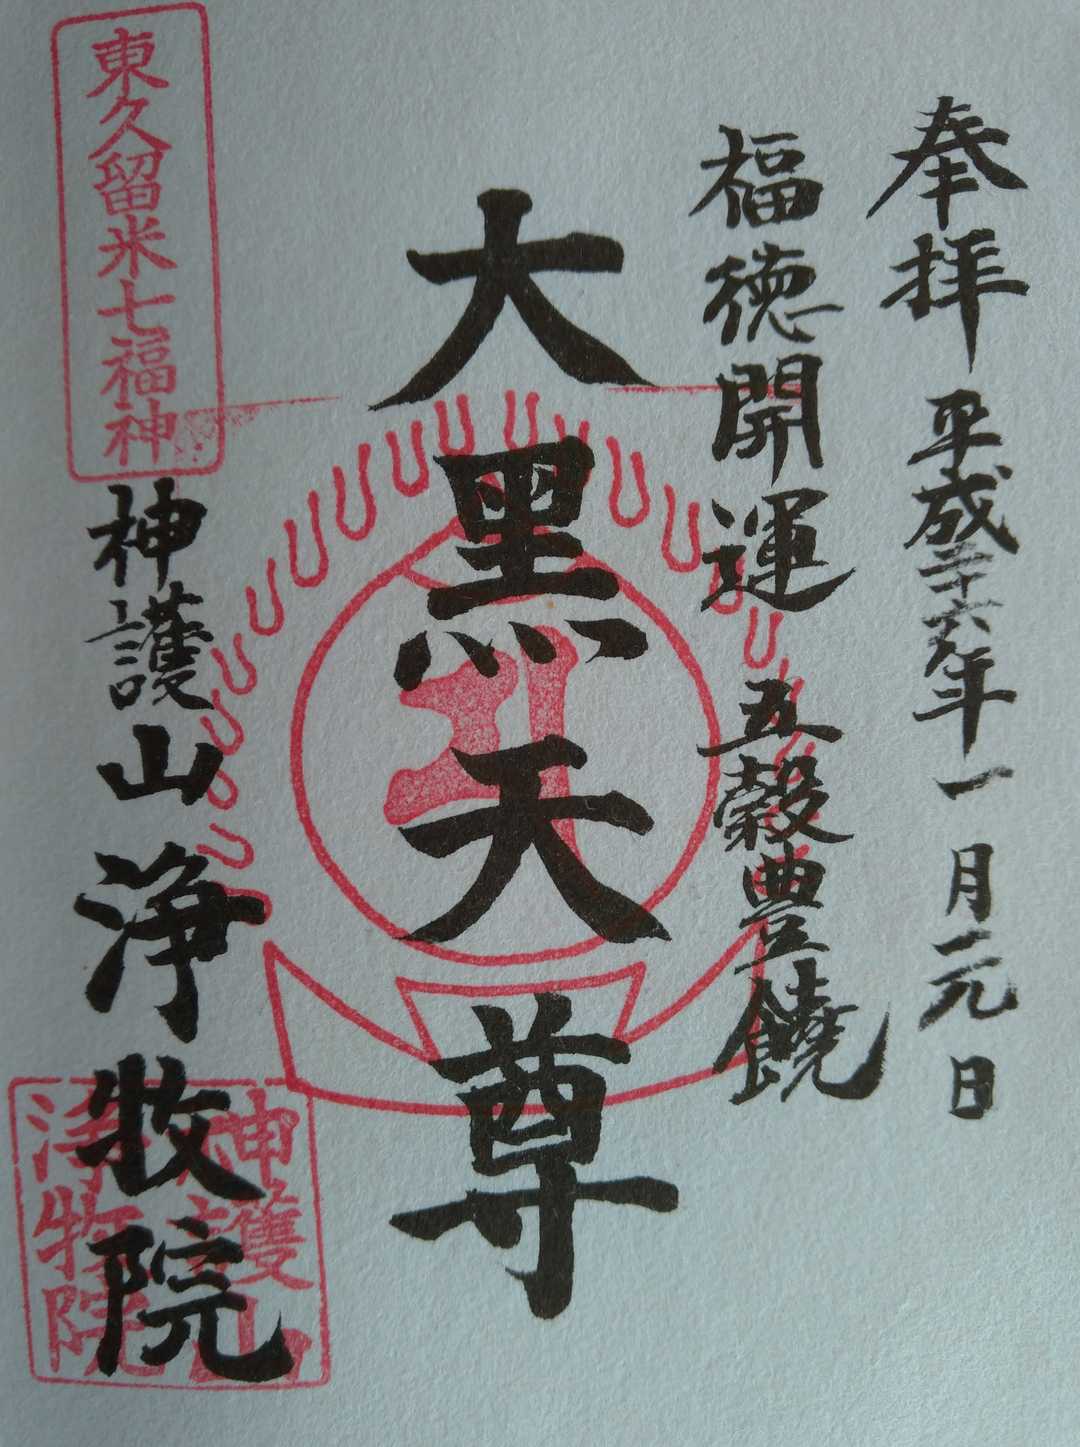 奉拝 平成二十六年一月元日
福徳開運 五穀豊饒
大黒天尊
東久留米七福神
神護山浄牧院
神護山
浄牧院